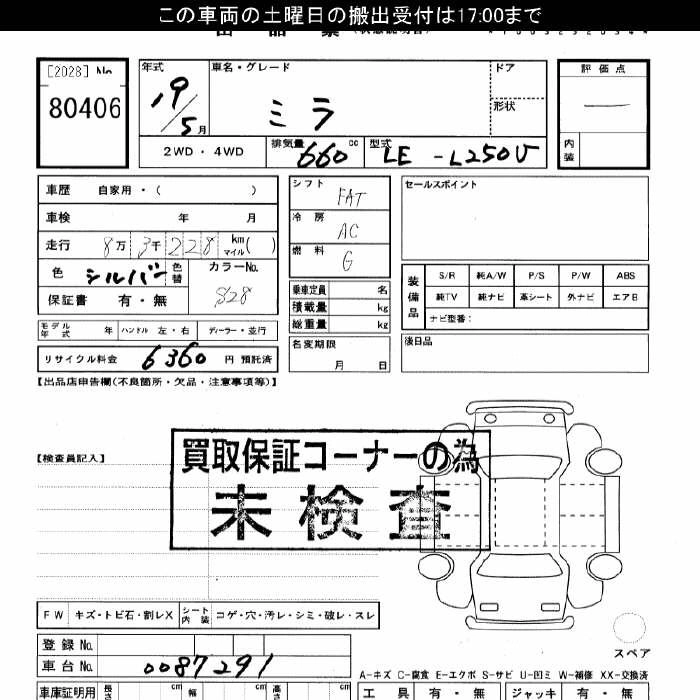 この車両の土曜日の搬出受付は17:00まで
[2028] No
80406
年式 19/5月
車名・グレード ミラ
ドア
形状
評価点 —
内装
2WD・4WD
排気量 660 cc
型式 LE-L250V
車歴 自家用・( )
車検 年 月
走行 8万3千228 km マイル( )
色 シルバー 色替 カラーNo. S28
保証書 有・無
シフト FAT
冷房 AC
燃料 G
乗車定員 名
積載量 kg
総重量 kg
セールスポイント
装備品
S/R 純A/W P/S P/W ABS
純TV 純ナビ 革シート 外ナビ エアB
ナビ型番:
モデル年式 年 ハンドル 左・右 ディーラー・並行
リサイクル料金 6360 円 預託済
名変期限 月 日
後日品
【出品店申告欄(不良箇所・欠品・注意事項等)】
【検査員記入】
買取保証コーナーの為
未検査
FW キズ・トビ石・割レX シート内装 コゲ・穴・汚レ・シミ・破レ・スレ
登録No.
車台No. 0087291
スペア
A-キズ C-腐食 E-エクボ S-サビ U-凹ミ W-補修 XX-交換済
車庫証明用 長さ cm 幅 cm 高さ cm
工具 有・無 ジャッキ 有・無